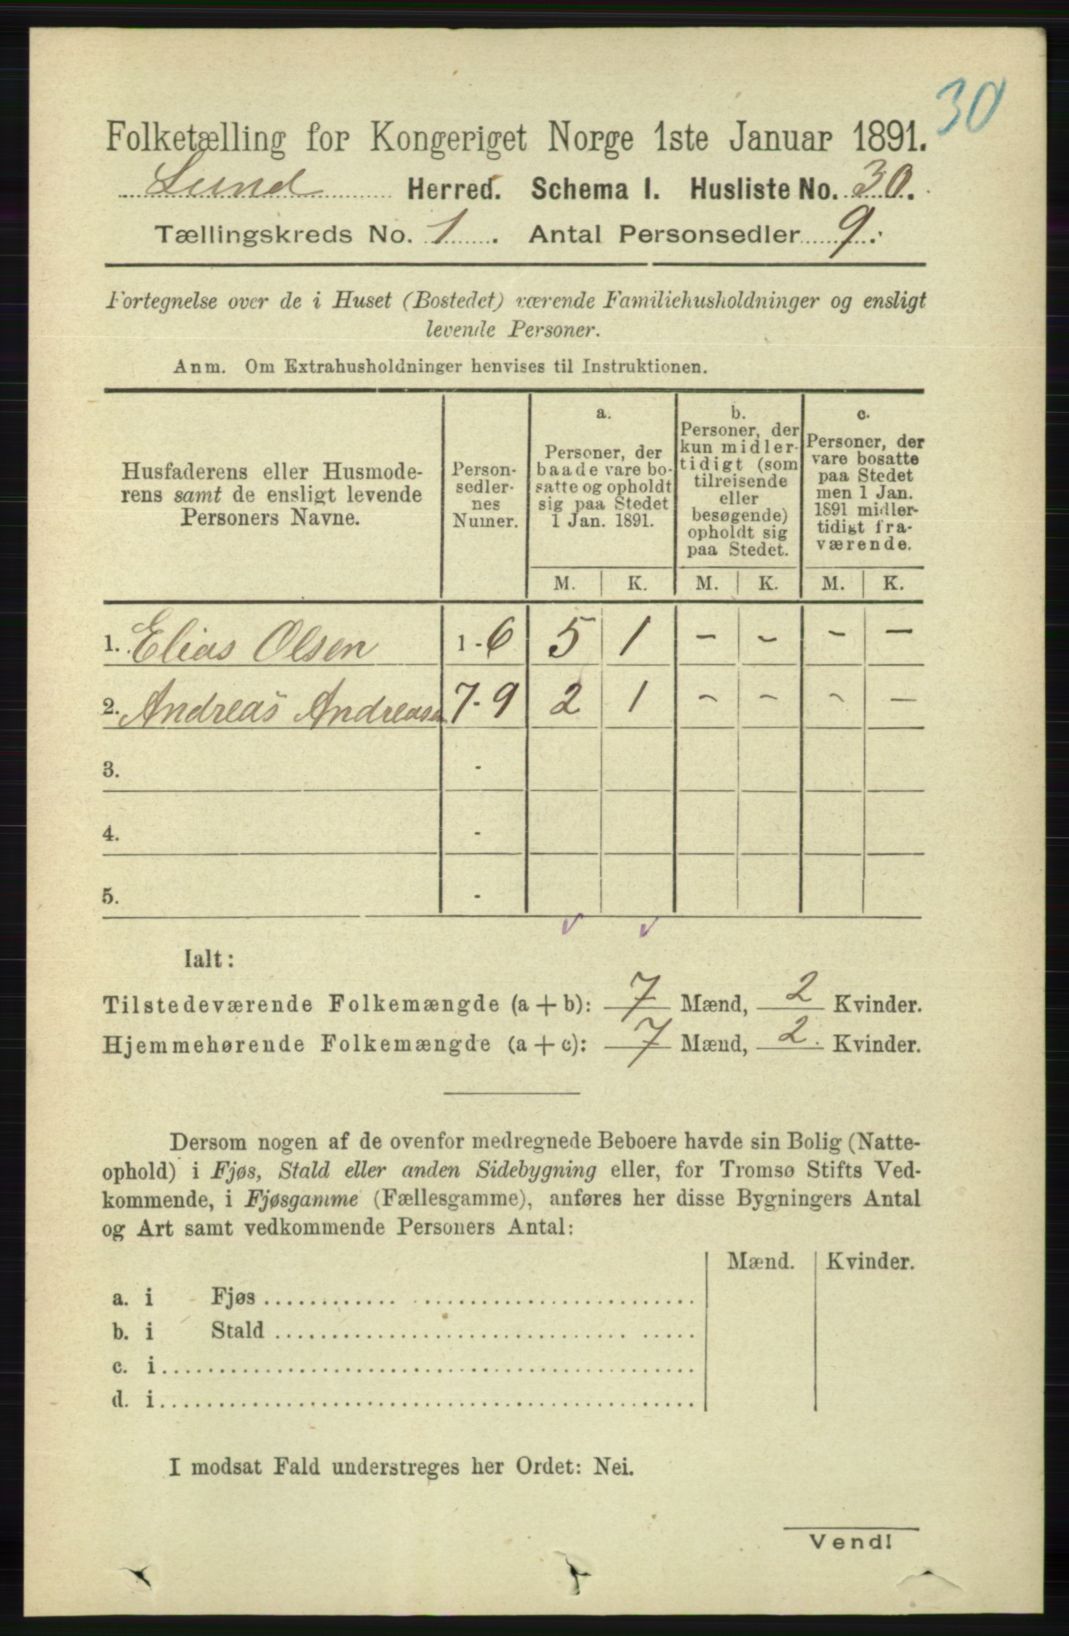 30
Folketælling for Kongeriget Norge 1ste Januar 1891.
Lund Herred. Schema I. Husliste No. 30.
Tællingskreds No. 1. Antal Personsedler 9.
Fortegnelse over de i Huset (Bostedet) værende Familiehusholdninger og ensligt
levende Personer.
Anm. Om Extrahusholdninger henvises til Instruktionen.
Husfaderens eller Husmode-
rens samt de ensligt levende
Personers Navne.
Person-
sedler-
nes
Numer.
a.
Personer, der
baade vare bo-
satte og opholdt
sig paa Stedet
1 Jan. 1891.
b.
Personer, der
kun midler-
tidigt (som
tilreisende
eller
besøgende)
opholdt sig
paa Stedet.
c.
Personer, der
vare bosatte
paa Stedet
men 1 Jan.
1891 midler-
tidigt fra-
værende.
M. K. M. K. M. K.
1. Elias Olsen 1-6 5 1 - - - -
2. Andreas Andreasen 7-9 2 1 - - - -
3. -
4. -
5. -
Ialt:
Tilstedeværende Folkemængde (a+b): 7 Mænd, 2 Kvinder.
Hjemmehørende Folkemængde (a+c): 7 Mænd, 2. Kvinder.
Dersom nogen af de ovenfor medregnede Beboere havde sin Bolig (Natte-
ophold) i Fjøs, Stald eller anden Sidebygning eller, for Tromsø Stifts Ved-
kommende, i Fjøsgamme (Fællesgamme), anføres her disse Bygningers Antal
og Art samt vedkommende Personers Antal:
Mænd. Kvinder.
a. i Fjøs
b. i Stald
c. i
d. i
I modsat Fald understreges her Ordet: Nei.
Vend!